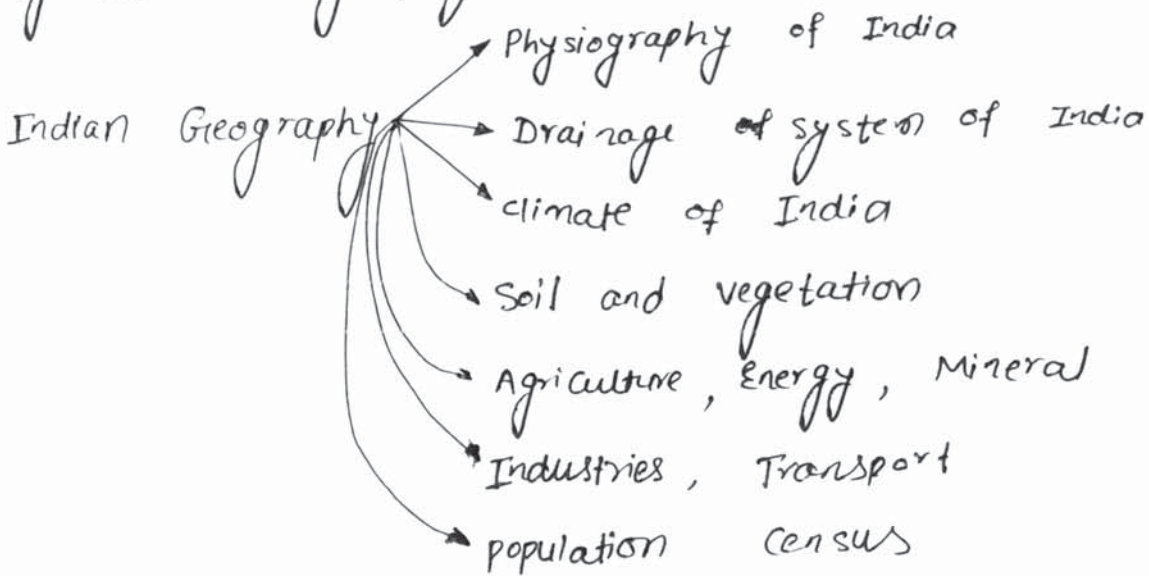 Physiography of India
Indian Geography
Drainage system of India
climate of India
Soil and vegetation
Agriculture, Energy, Mineral
Industries, Transport
population Census